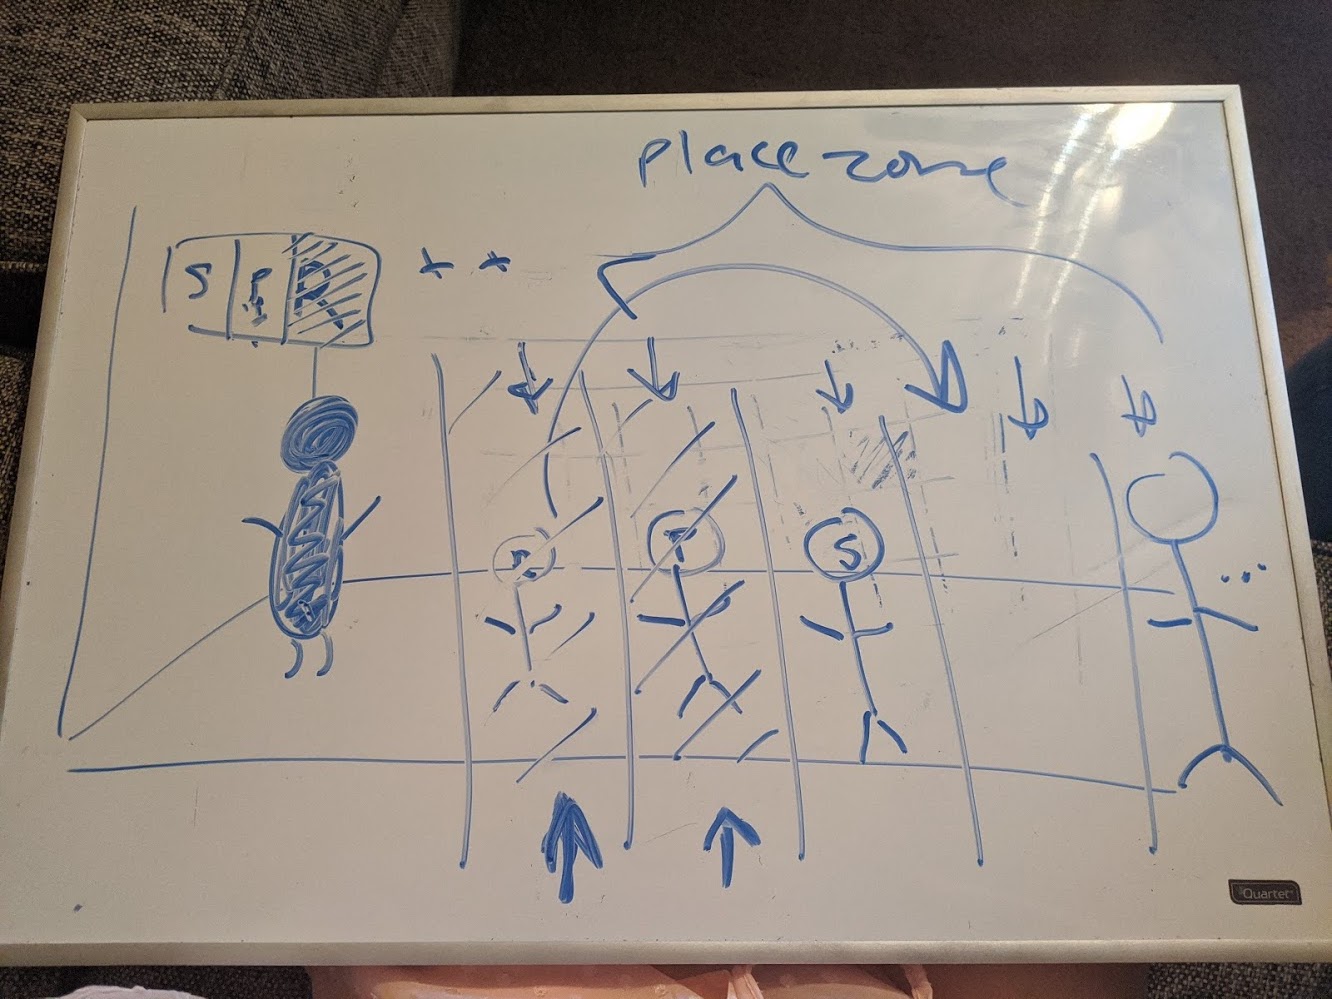 place zone
S P R
R P S
...
Quartet